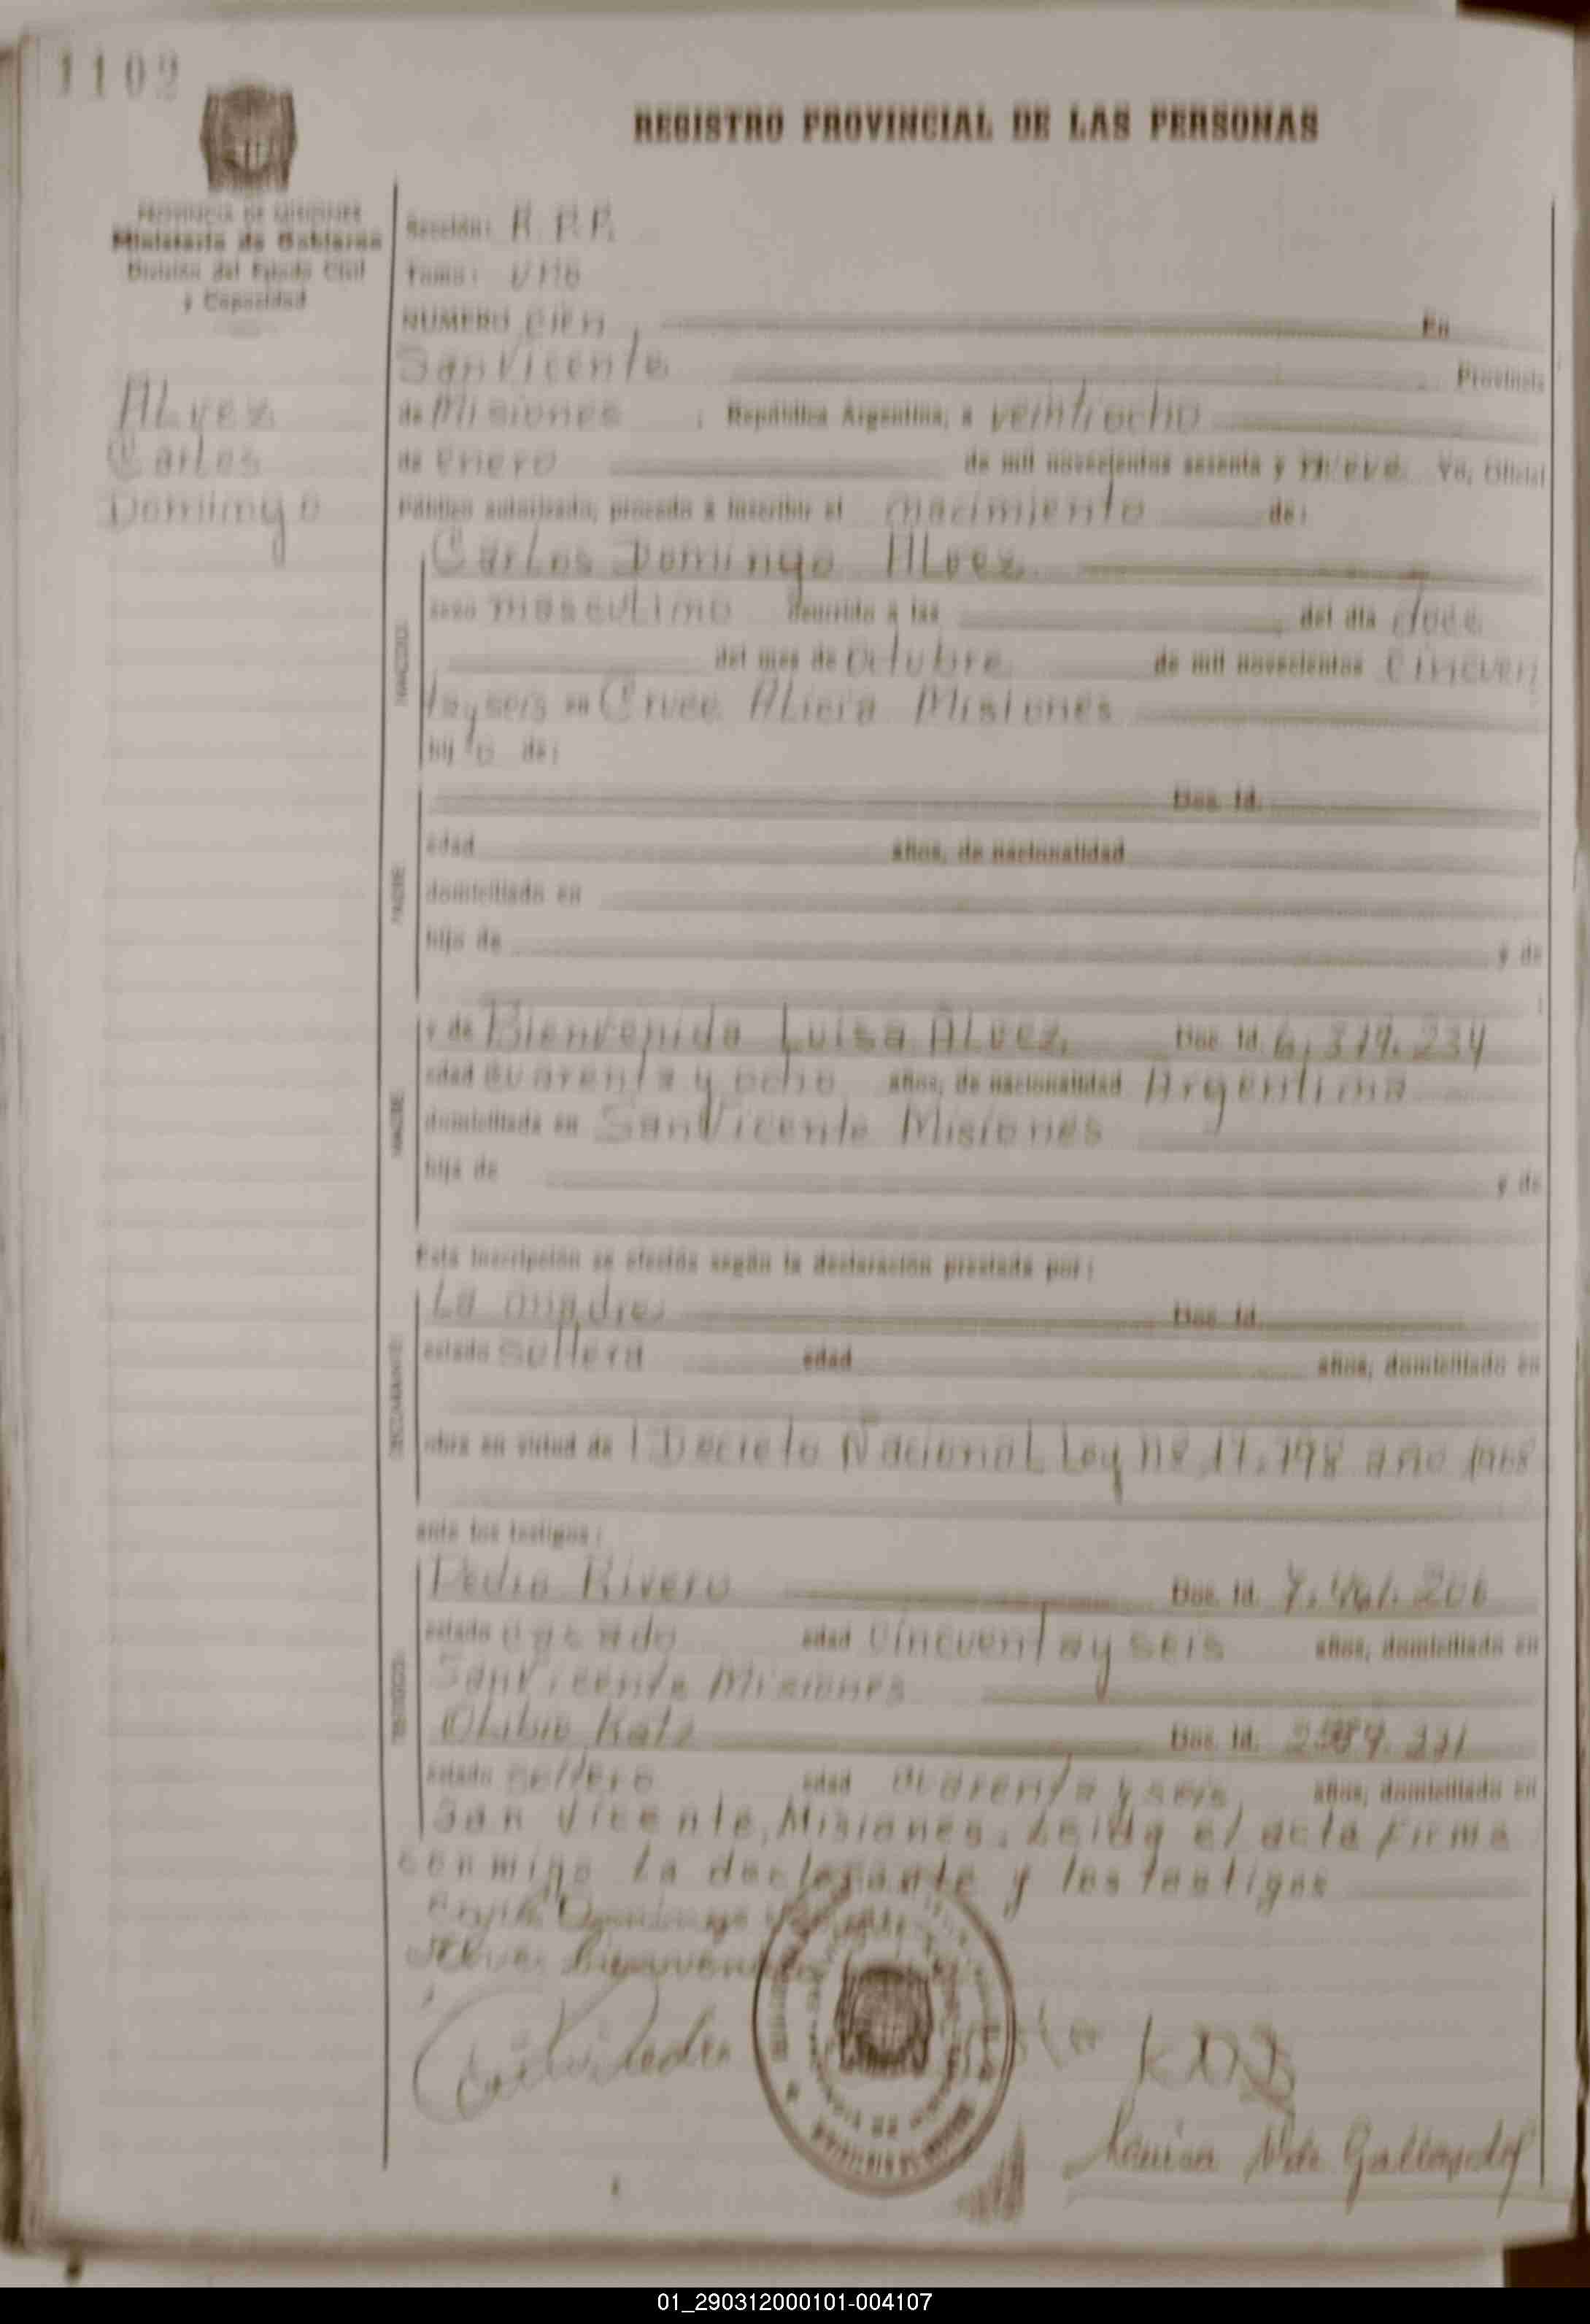 1102
REGISTRO PROVINCIAL DE LAS PERSONAS
PROVINCIA DE MISIONES
Ministerio de Gobierno
División del Estado Civil
y Capacidad
Alvez
Carlos
Domingo
Sección:
Tomo:
NUMERO CIEN En
San Vicente Provincia
de Misiones , República Argentina, a veintiocho
de enero de mil novecientos sesenta y nueve Yo, Oficial
Público autorizado, procedo a inscribir el nacimiento de:
Carlos Domingo Alvez
sexo masculino ocurrido a las del día doce
del mes de octubre de mil novecientos cincuen
ta y seis en Cruce Alicia Misiones
hijo de:
Doc. Id.
PADRE
edad años, de nacionalidad
domiciliado en
hijo de y de
MADRE
y de Bienvenida Luisa Alvez Doc. Id. 6.379.234
edad cuarenta y ocho años, de nacionalidad Argentina
domiciliada en San Vicente Misiones
hija de y de
Esta inscripción se efectúa según la declaración prestada por:
DECLARANTE
La madre Doc. Id.
estado soltera edad años, domiciliado en
obra en virtud de l Decreto Nacional Ley nº 17.798 año 1968
ante los testigos:
TESTIGOS
Pedro Rivero Doc. Id. 206
estado casado edad cincuenta y seis años, domiciliado en
San Vicente Misiones
Olibio Katz Doc. Id.
estado soltero edad cuarenta y seis años, domiciliado en
San Vicente, Misiones. Leida el acta firma
conmigo la declarante y los testigos
Domingo
Bienvenida
Gallardo
01_290312000101-004107